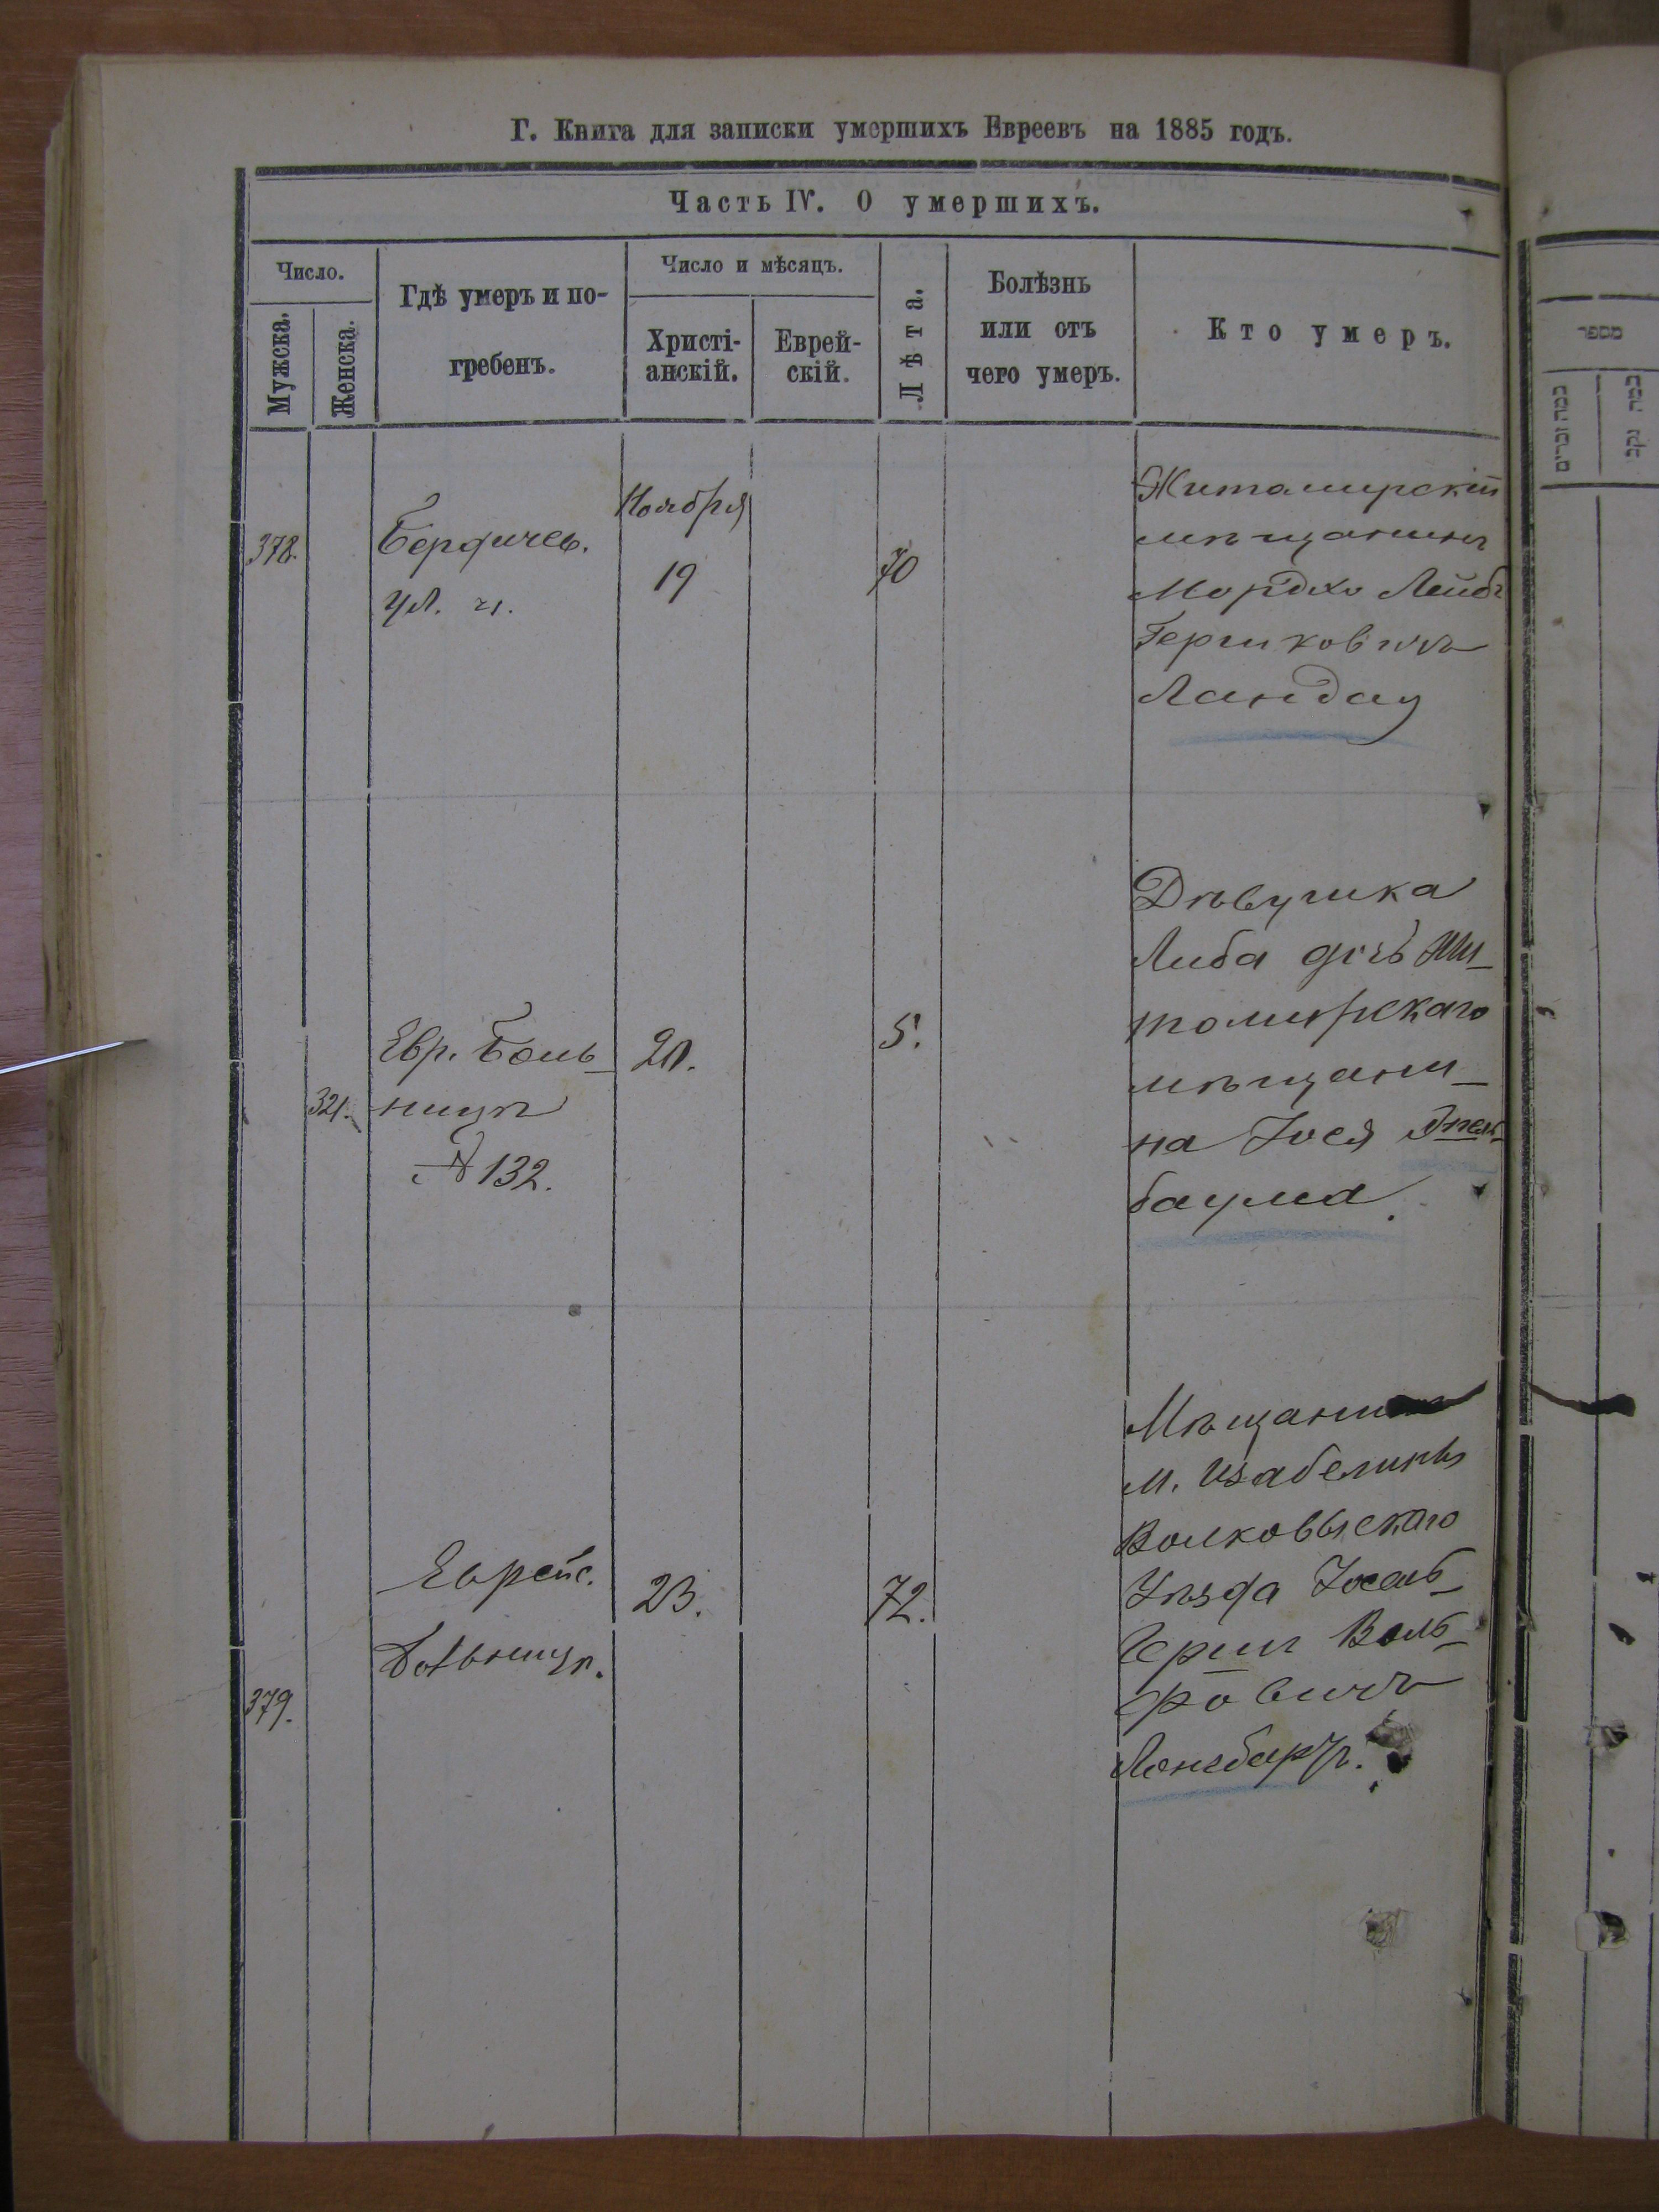 Г. Книга для записки умершихъ Евреевъ на 1885 годъ.
Часть IV. О умершихъ.
Число.
Мужска.
Женска.
Гдѣ умеръ и по-
гребенъ.
Число и мѣсяцъ.
Христі-
анскій.
Еврей-
скій.
Лѣта.
Болѣзнь
или отъ
чего умеръ.
Кто умеръ.
378.
Бердичев.
ул.
Ноября
19
70
Житомирскій
мѣщанинъ
Мордхо Лейбъ
Гершковичъ
Ландау
321.
Евр. Боль-
ницѣ
№ 132.
20.
5.
Дѣвушка
Либа дочь Жи-
томирскаго
мѣщани-
на Іося
баума.
379.
Еврейс.
Больницѣ.
23.
72.
Мѣщанинъ
м. Изабелинъ
Волковыскаго
Уѣзда Іосель
Герш Воль-
фовичъ
מספר
כמה זכרים
כמה נקב